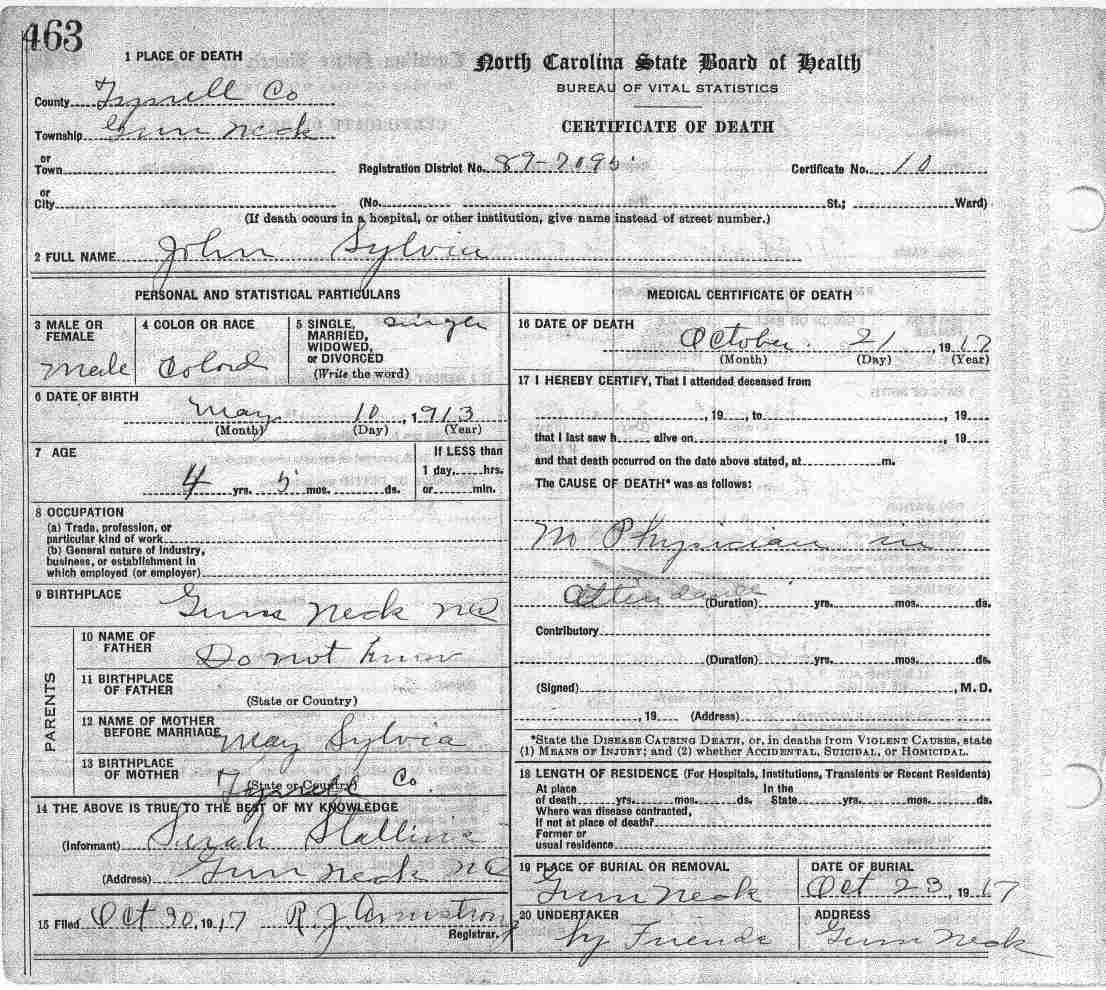 463
1 PLACE OF DEATH
North Carolina State Board of Health
BUREAU OF VITAL STATISTICS
CERTIFICATE OF DEATH
County Tyrrell Co
Township Gum Neck
or Town
Registration District No. 89-7095 Certificate No. 10
or City (No. St.; Ward)
(If death occurs in a hospital, or other institution, give name instead of street number.)
2 FULL NAME John Sylvia
PERSONAL AND STATISTICAL PARTICULARS
3 MALE OR FEMALE Male
4 COLOR OR RACE Colord
5 SINGLE, MARRIED, WIDOWED, or DIVORCED (Write the word)
6 DATE OF BIRTH May 10, 1913
(Month) (Day) (Year)
7 AGE 4 yrs. 5 mos. ds.
If LESS than 1 day, hrs. or min.
8 OCCUPATION
(a) Trade, profession, or particular kind of work
(b) General nature of Industry, business, or establishment in which employed (or employer)
9 BIRTHPLACE Gum Neck NC
PARENTS
10 NAME OF FATHER Do not know
11 BIRTHPLACE OF FATHER
(State or Country)
12 NAME OF MOTHER BEFORE MARRIAGE May Sylvia
13 BIRTHPLACE OF MOTHER Tyrrell Co.
(State or Country)
14 THE ABOVE IS TRUE TO THE BEST OF MY KNOWLEDGE
(Informant) Sarah
(Address) Gum Neck NC
15 Filed Oct 30, 1917 R. J. Armstrong
Registrar.
MEDICAL CERTIFICATE OF DEATH
16 DATE OF DEATH October 21, 1917
(Month) (Day) (Year)
17 I HEREBY CERTIFY, That I attended deceased from
, 19 , to , 19
that I last saw h alive on , 19
and that death occurred on the date above stated, at m.
The CAUSE OF DEATH* was as follows:
No Physician in
attendance (Duration) yrs. mos. ds.
Contributory
(Duration) yrs. mos. ds.
(Signed) , M.D.
, 19 (Address)
*State the DISEASE CAUSING DEATH, or, in deaths from VIOLENT CAUSES, state
(1) MEANS OF INJURY; and (2) whether ACCIDENTAL, SUICIDAL, or HOMICIDAL.
18 LENGTH OF RESIDENCE (For Hospitals, Institutions, Transients or Recent Residents)
At place of death yrs. mos. ds. In the State yrs. mos. ds.
Where was disease contracted, If not at place of death?
Former or usual residence
19 PLACE OF BURIAL OR REMOVAL Gum Neck
DATE OF BURIAL Oct 23, 1917
20 UNDERTAKER by Friends
ADDRESS Gum Neck